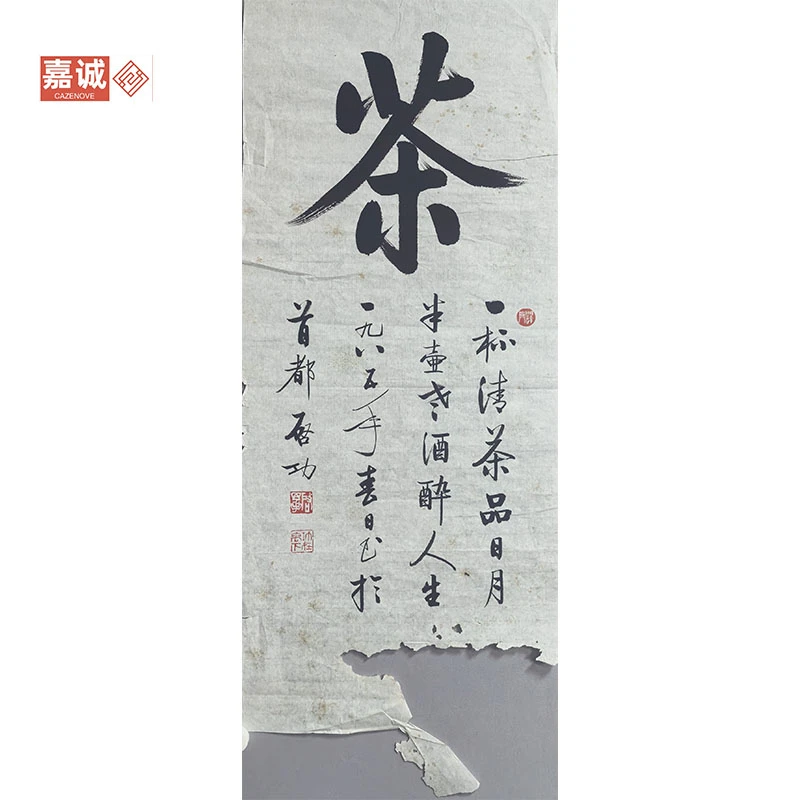 嘉诚
CAZENOVE
茶
一杯清茶品日月
半壶老酒醉人生
一九八五年春日书於
首都 启功